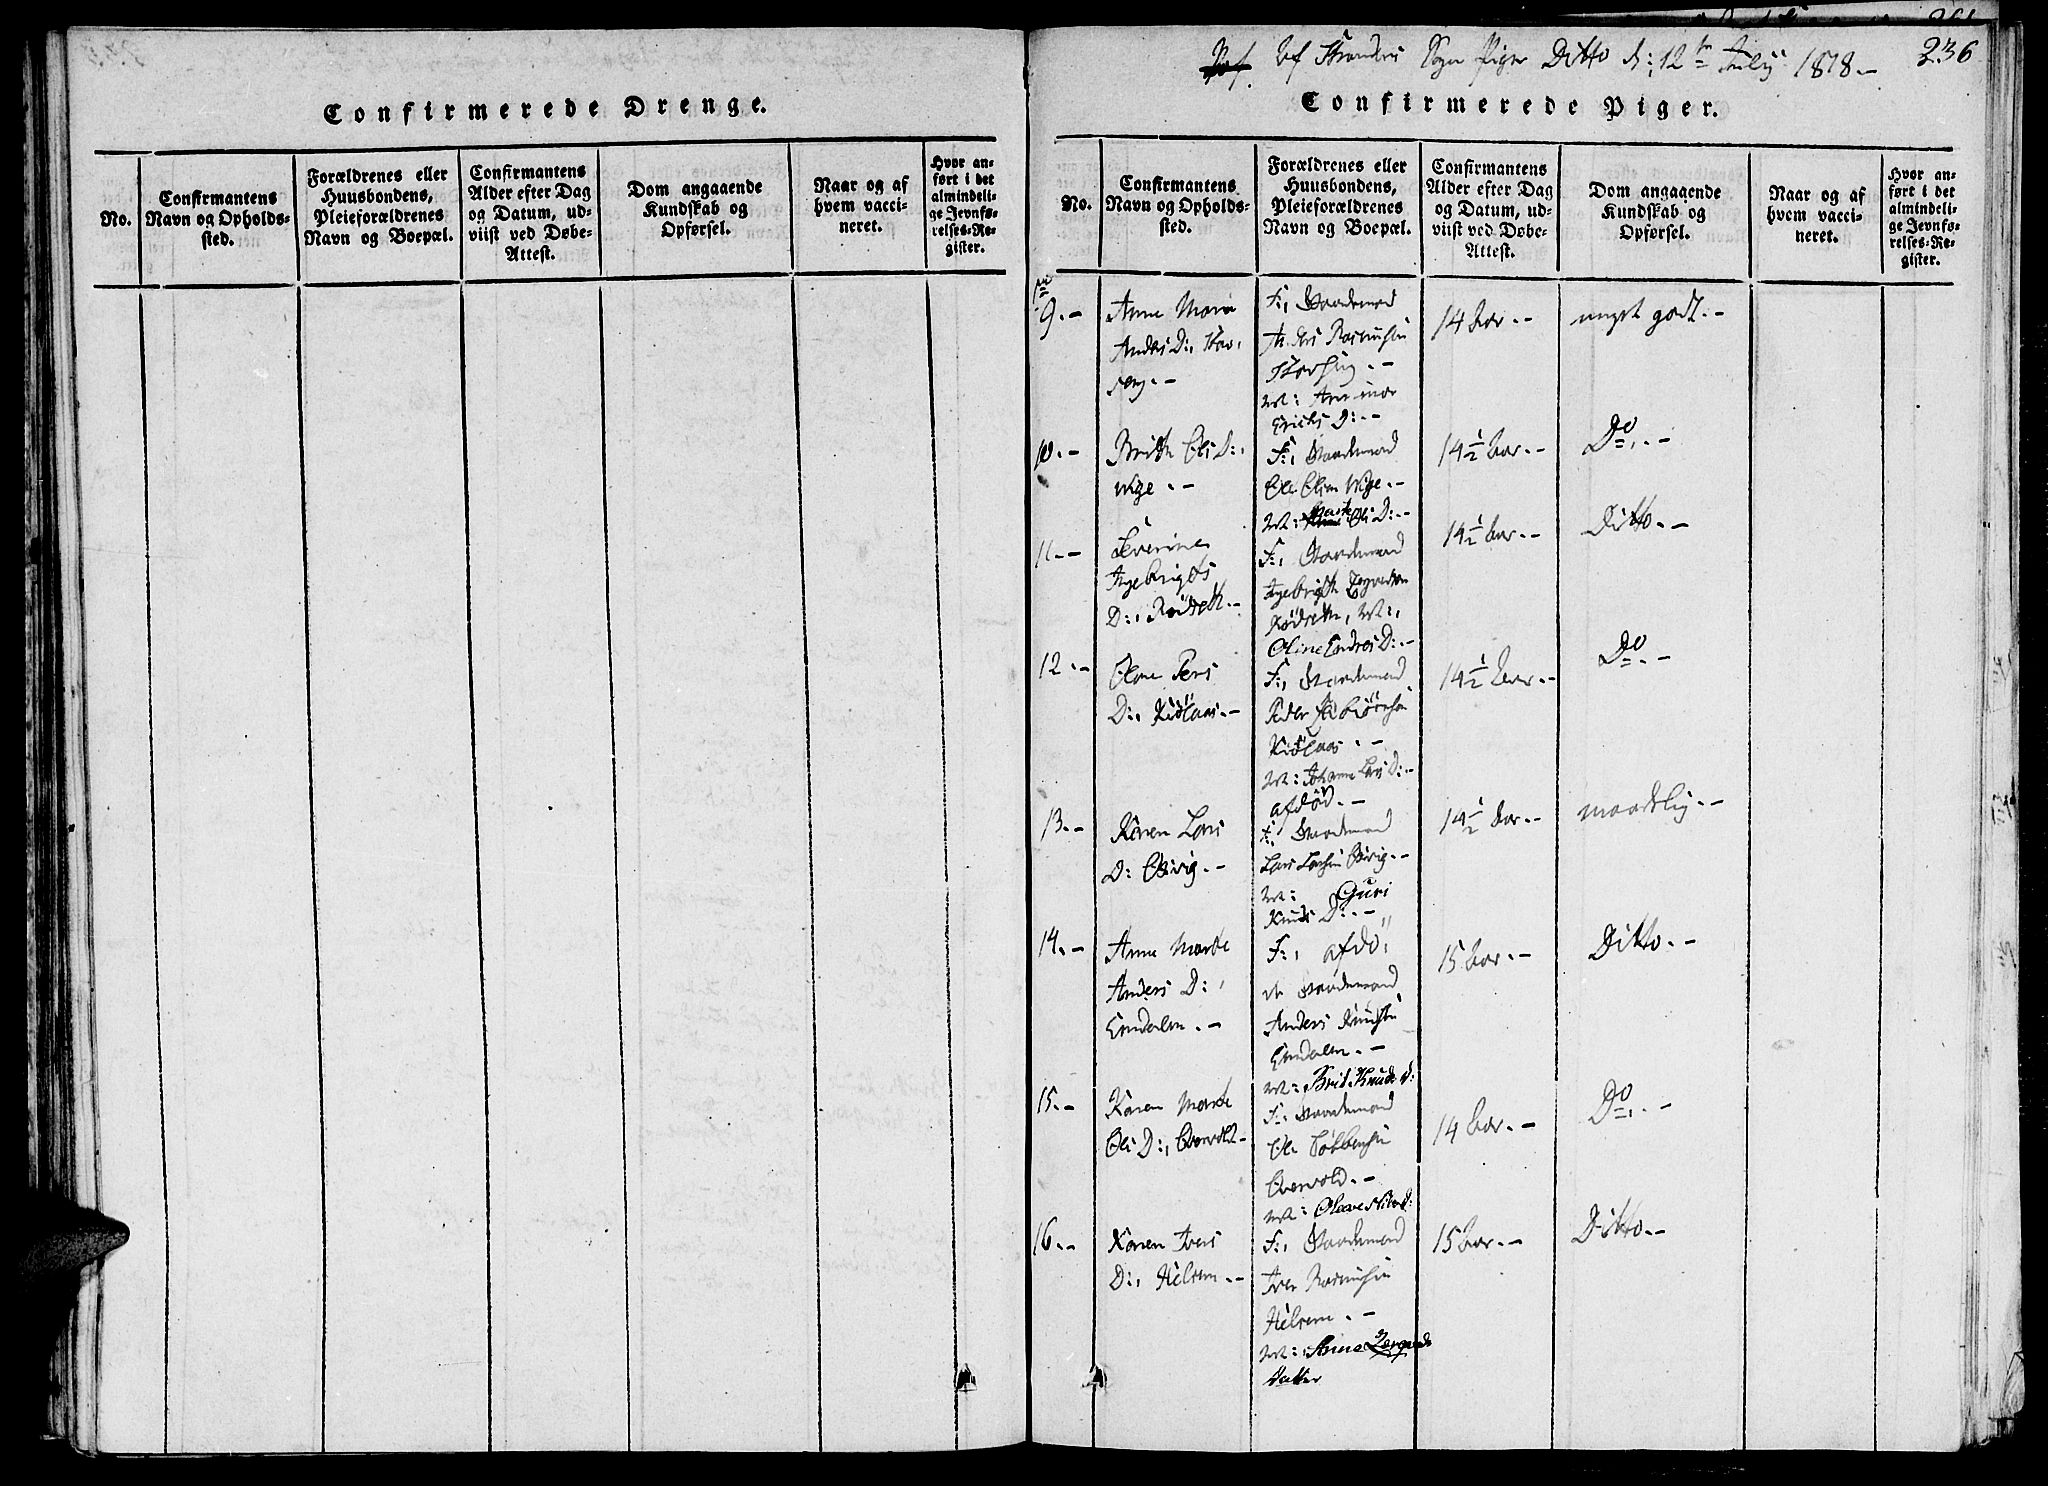 Confirmerede Drenge.
No.
Confirmantens
Navn og Opholds-
sted.
Forældrenes eller
Huusbondens,
Pleieforældrenes
Navn og Boepæl.
Confirmantens
Alder efter Dag
og Datum, ud-
viist ved Døbe-
Attest.
Dom angaaende
Kundskab og
Opførsel.
Naar og af
hvem vacci-
neret.
Hvor an-
ført i det
almindeli-
ge Jevnfø-
relses-Re-
gister.
Af Sogn Piger Ditto d: 12te July 1818.-
236
Confirmerede Piger.
No.
Confirmantens
Navn og Opholds-
sted.
Forældrenes eller
Huusbondens,
Pleieforældrenes
Navn og Boepæl.
Confirmantens
Alder efter Dag
og Datum, ud-
viist ved Døbe-
Attest.
Dom angaaende
Kundskab og
Opførsel.
Naar og af
hvem vacci-
neret.
Hvor an-
ført i det
almindeli-
ge Jevnfø-
relses-Re-
gister.
9.-
Anne Marie
Anders D:,
F:, Gaardemand
Anders Rasmusen
M:
Erichs D:.-
14 Aar.-
meget godt.-
10.-
Brith Ols D:,
Wige.-
F:, Gaardemand
Ole Olsen Wige.-
M: Ols D:.-
14 1/2 Aar.-
Do.-
11.-
Severine
Ingebrigts
D:, Rødseth.-
F:, Gaardemand
Ingebrigth
Rødseth, M:,
Oline Endres D:.-
14 1/2 Aar.-
Ditto.-
12.-
Olave Pers
D:, Kiølaas.-
F:, Gaardemand
Peder
Kiølaas.-
M: Johanne Lars D:.-
afdød.-
14 1/2 Aar.-
Do.-
13.-
Karen Lars
D:
F:, Gaardemand
Lars Larsen
M: Guri
Knuds D:.-
14 1/2 Aar.-
maadelig.-
14.-
Anne Marte
Anders D:,
Emdalen.-
F:, afdø,
de Gaardemand
Anders Knusen
Emdalen.-
M: Brit Knuds D:
15 Aar.-
Ditto.-
15.-
Karen Marte
Ols D:, Overvold-
F:, Gaardemand
Ole
Overvold.-
M: Oleave Nils D:
14 Aar.-
Do.-
16.-
Karen Ivers
D:, Helsem.-
F:, Gaardemand
Iver Rasmusen
Helsem.-
M:, Anne
datter
15 Aar.-
Ditto.-